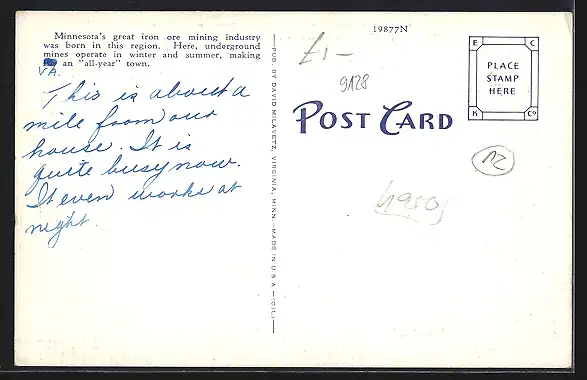 Minnesota's great iron ore mining industry
was born in this region. Here, underground
mines operate in winter and summer, making
an "all-year" town.
VA.
This is about a
mile from our
house. It is
quite busy now.
It even works at
night.
PUB. BY DAVID MILAVETZ, VIRGINIA, MINN.—MADE IN U.S.A.—(C.T.)
19877N
£1-
9128
POST CARD
E C
PLACE
STAMP
HERE
K Co
12